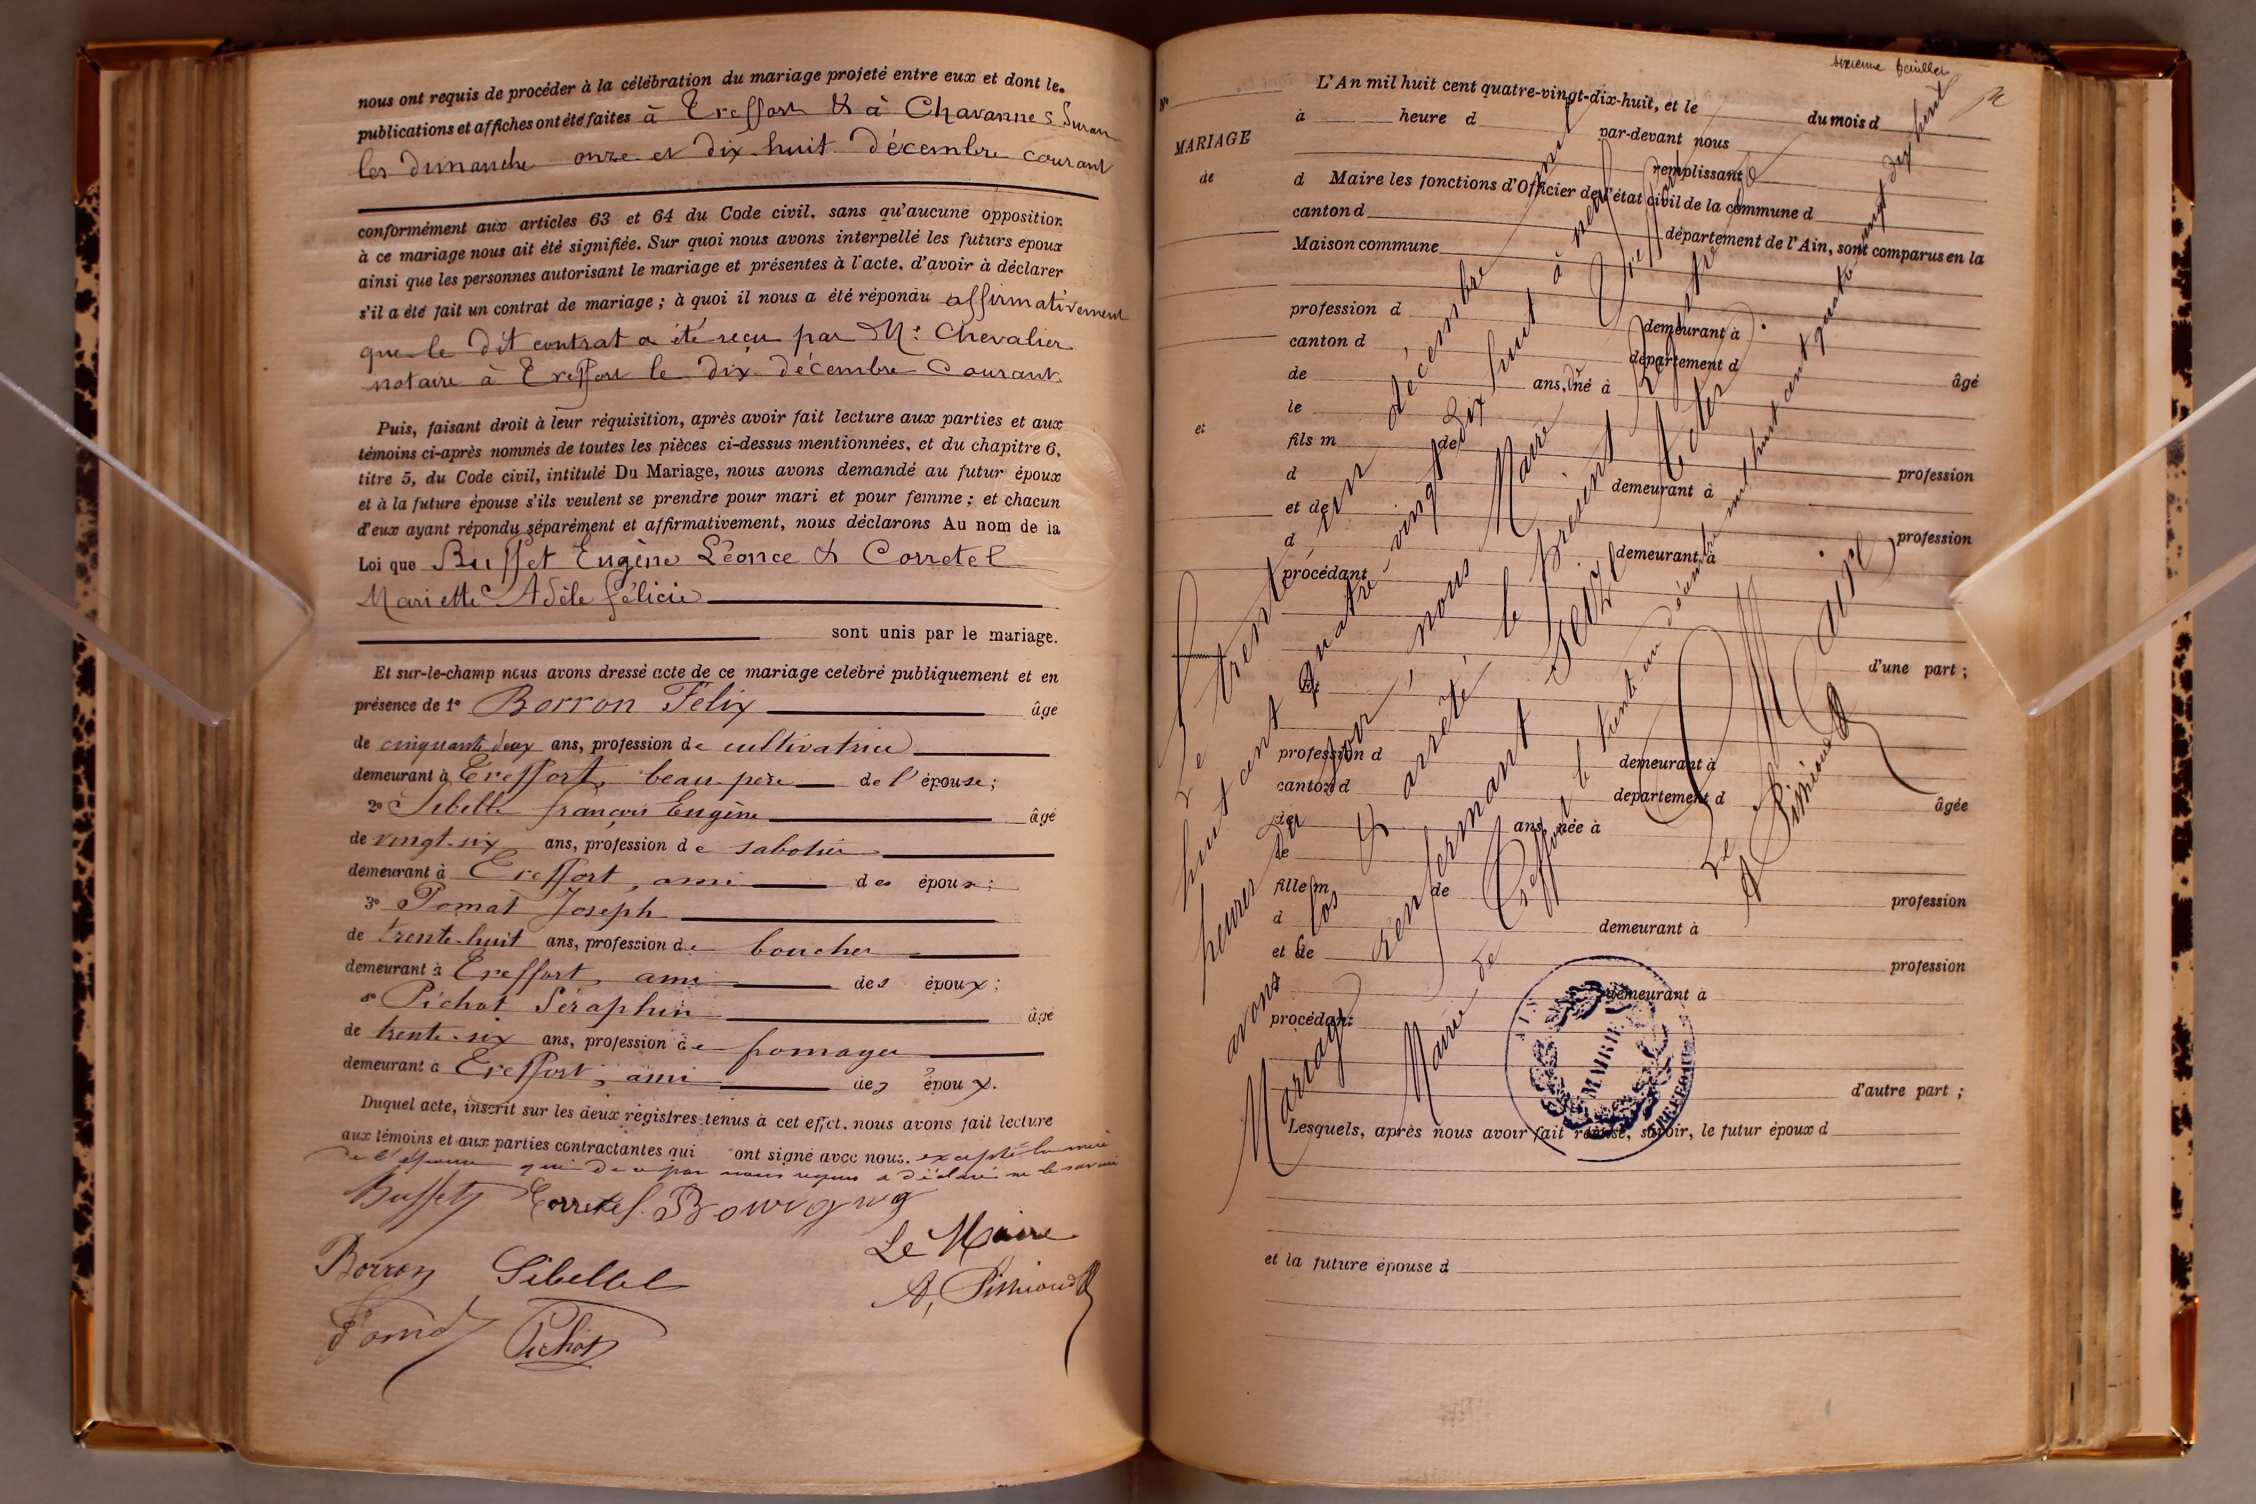 nous ont requis de procéder à la célébration du mariage projeté entre eux et dont les
publications et affiches ont été faites à Treffort & à Chavannes s Suran
les dimanche onze et dix huit décembre courant
conformément aux articles 63 et 64 du Code civil, sans qu'aucune opposition
à ce mariage nous ait été signifiée. Sur quoi nous avons interpellé les futurs époux
ainsi que les personnes autorisant le mariage et présentes à l'acte, d'avoir à déclarer
s'il a été fait un contrat de mariage ; à quoi il nous a été répondu affirmativement
que le dit contrat a été reçu par Me Chevalier
notaire à Treffort le dix décembre courant
Puis, faisant droit à leur réquisition, après avoir fait lecture aux parties et aux
témoins ci-après nommés de toutes les pièces ci-dessus mentionnées, et du chapitre 6,
titre 5, du Code civil, intitulé Du Mariage, nous avons demandé au futur époux
et à la future épouse s'ils veulent se prendre pour mari et pour femme ; et chacun
d'eux ayant répondu séparément et affirmativement, nous déclarons Au nom de la
Loi que Buffet Eugène Léonce & Corretel
Mariette Adèle félicie
sont unis par le mariage.
Et sur-le-champ nous avons dressé acte de ce mariage célébré publiquement et en
présence de 1° Borron Félix âgé
de cinquante deux ans, profession de cultivatrice
demeurant à Treffort, beau-père de l'épouse ;
2° Sibelle françois Eugène âgé
de vingt-six ans, profession de sabotier
demeurant à Treffort, ami des époux ;
3° Pomat Joseph
de trente-huit ans, profession de boucher
demeurant à Treffort, ami des époux ;
4° Pichot Séraphin âgé
de trente-six ans, profession de fromager
demeurant à Treffort, ami des époux.
Duquel acte, inscrit sur les deux registres tenus à cet effet, nous avons fait lecture
aux témoins et aux parties contractantes qui ont signé avec nous, excepté la mère
de l'épouse qui de ce par nous requis a déclaré ne le savoir
Buffet Corretel Bouvgng
Borron Sibellel Le Maire
Pomat Pichot A, Pithioud
sixième feuillet
N°
MARIAGE
de
et
L'An mil huit cent quatre-vingt-dix-huit, et le du mois d
à heure d par-devant nous
remplissant
d Maire les fonctions d'Officier de l'état civil de la commune d
canton d département de l'Ain, sont comparus en la
Maison commune
profession d demeurant à
canton d département d
de ans, né à âgé
le
fils m de
d profession
et de demeurant à
d profession
procédant demeurant à
d'une part ;
Et
profession d demeurant à
canton d département d
de ans, née à âgée
le
fille m de
d profession
et de demeurant à
d profession
procédant demeurant à
d'autre part ;
Lesquels, après nous avoir fait remise, savoir, le futur époux d
et la future épouse d
Le trente un décembre mil
huit cent quatre vingt dix huit à neuf
heures du soir, nous Maire de Treffort
avons clos & arrêté le présent registre
Mariage renfermant sept actes.
Mairie de Treffort le trente un décembre mil huit cent quatre vingt dix huit
Le Maire
A Pithioud
MAIRIE